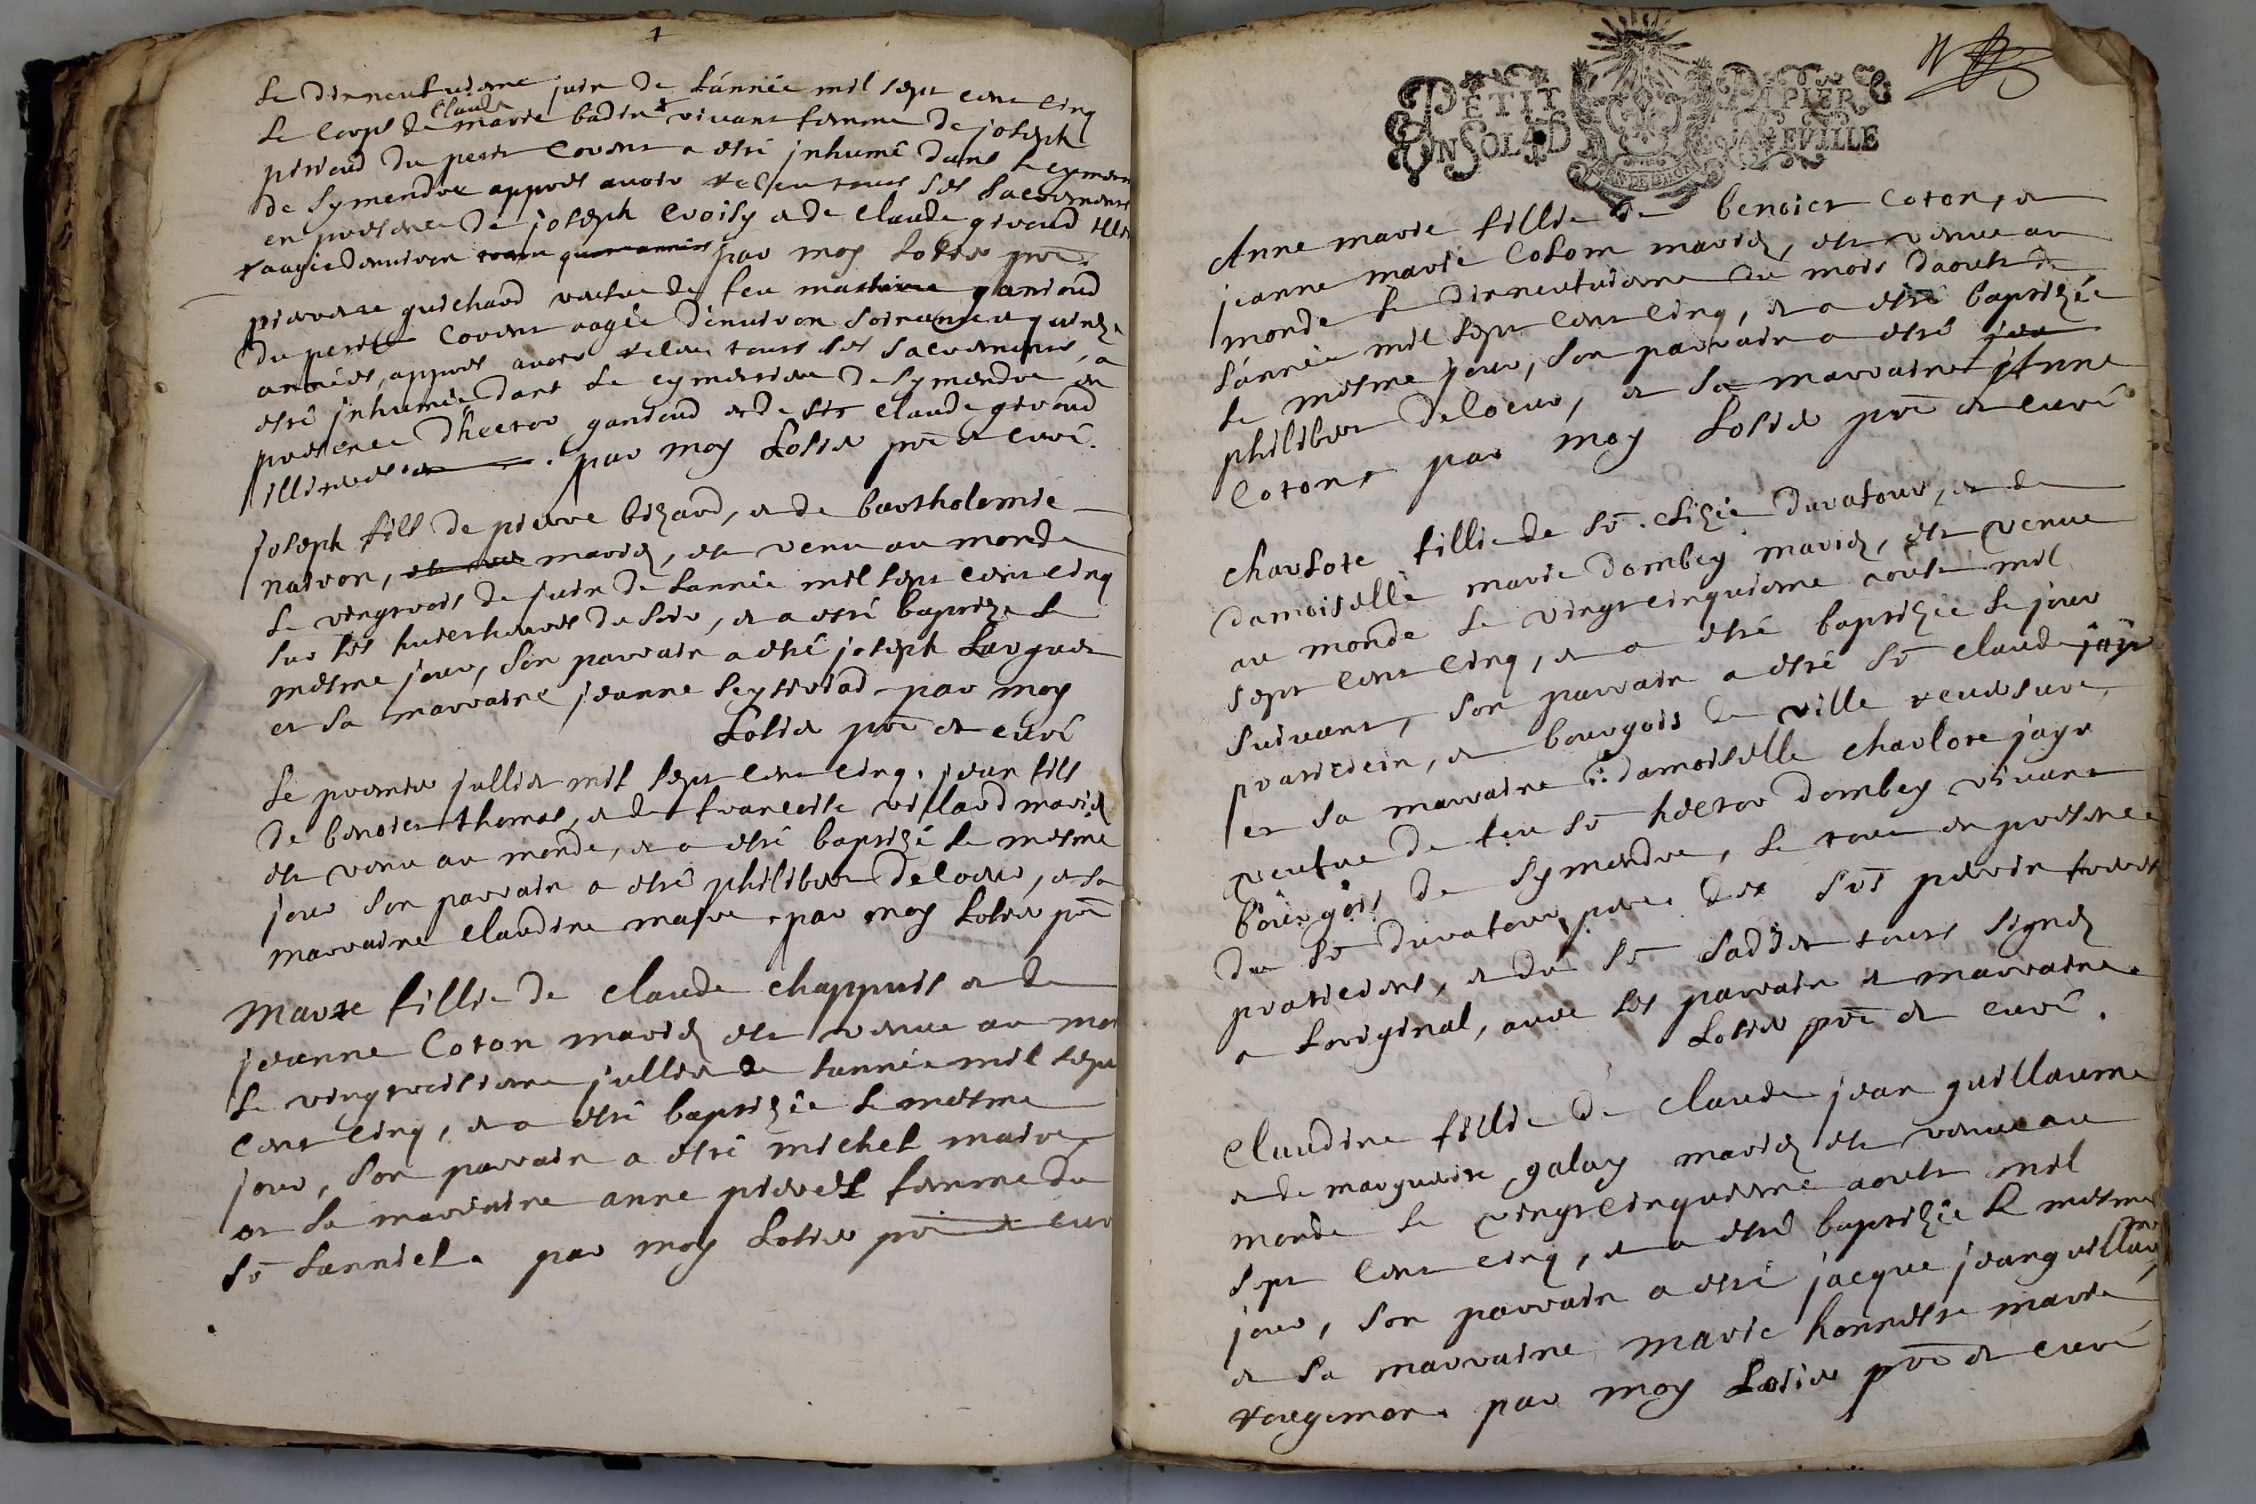 1
Le dixneufviesme juin de Lánnée mil sept cent cinq
Le corps de Claude marie badin vivant femme de joseph
piroud du petit Covent a esté jnhumé dans le cymeti
de symendre apprés avoir receu tous ses sacrements
en presence de joseph Croisy et de Claude giroud illi
aagée denviron par moy Lotier prē.
pierrere guichard veufve de feu ganioud
du petit Covent aagée dénviron soixante et quinze
années, apprés avoir receu tous ses sacrements, a
esté jnhumée dans Le cymetiere de symendre en
presence dhector ganioud et de sis Claude giroud
illiterés. par moy Lotier prē et curé.
joseph fils de pierre bizard, et de bartholemie
naivon, mariés, est venu au monde
Le vingtrois de juin de Lannée mil sept cent cinq
sur les huictheures du soir, et a esté baptize Le
mesme jour, son parrain a esté joseph Larguet
et sa marraine jeanne seytiriad par moy
Lotier prē et curé
Le premier jullier mil sept cent cinq. jean fils
de benoict thomas, et de francoise villard mariés
est venu au monde, et a esté baptizé le mesme
jour son parrain a esté philibert delocur, et sa
marraine Claudine par moy Lotier prē
Marie fillie de Claude chappuis et de
jeanne Coton mariés est venue au mon
Le vingtroisiesme jullier de Lannée mil sept
cent cinq, et a esté baptizée le mesme
jour, son parrain a esté michel maire
et sa marraine anne pierrel femme du
sr Lanniel. par moy Lotier prē et cur
PETIT PAPIER
UN SOL 4 D LA FEVILLE
Anne marie fillie de benoict Coton, et
jeanne marie Colom mariés, est venue au
monde Le dixneufviesme du mois daoust de
Lánnée mil sept cent cinq, et a esté baptizée
Le mesme jour, son parrain a esté
philibert delocur, et sa marraine Anne
Coton, par moy Lotier prē et curé
charlote fillie de sr. elizée duratour, et de
damoiselle marie dombey mariés, est venue
au monde Le vingtcinquiesme aoust mil
sept cent cinq, et a esté baptizée le jour
suivant, son parrain a esté sr Claude jayr
praticiein, et bourgois de ville reversure,
et sa marraine damoiselle charlote jayr
veufve de feu sr hector dombey vivant
bourgois de symendre, Le tout en presence
du sr duratour, pere des srs perrin freres
praticiens, et du sr saddet tous signés
a Loriginal, avec les parrain et marraine.
Lotier prē et curé.
Claudine fillie de Claude jean guillaume
et de marguerite galay mariés est venue au
monde Le vingtcinquiesme aoust mil
sept cent cinq, et a esté baptizée le mesme
jour, son parrain a esté jacque jeanguillaume
et sa marraine marie honneste marie
rougemon. par moy Lotier prē et curé